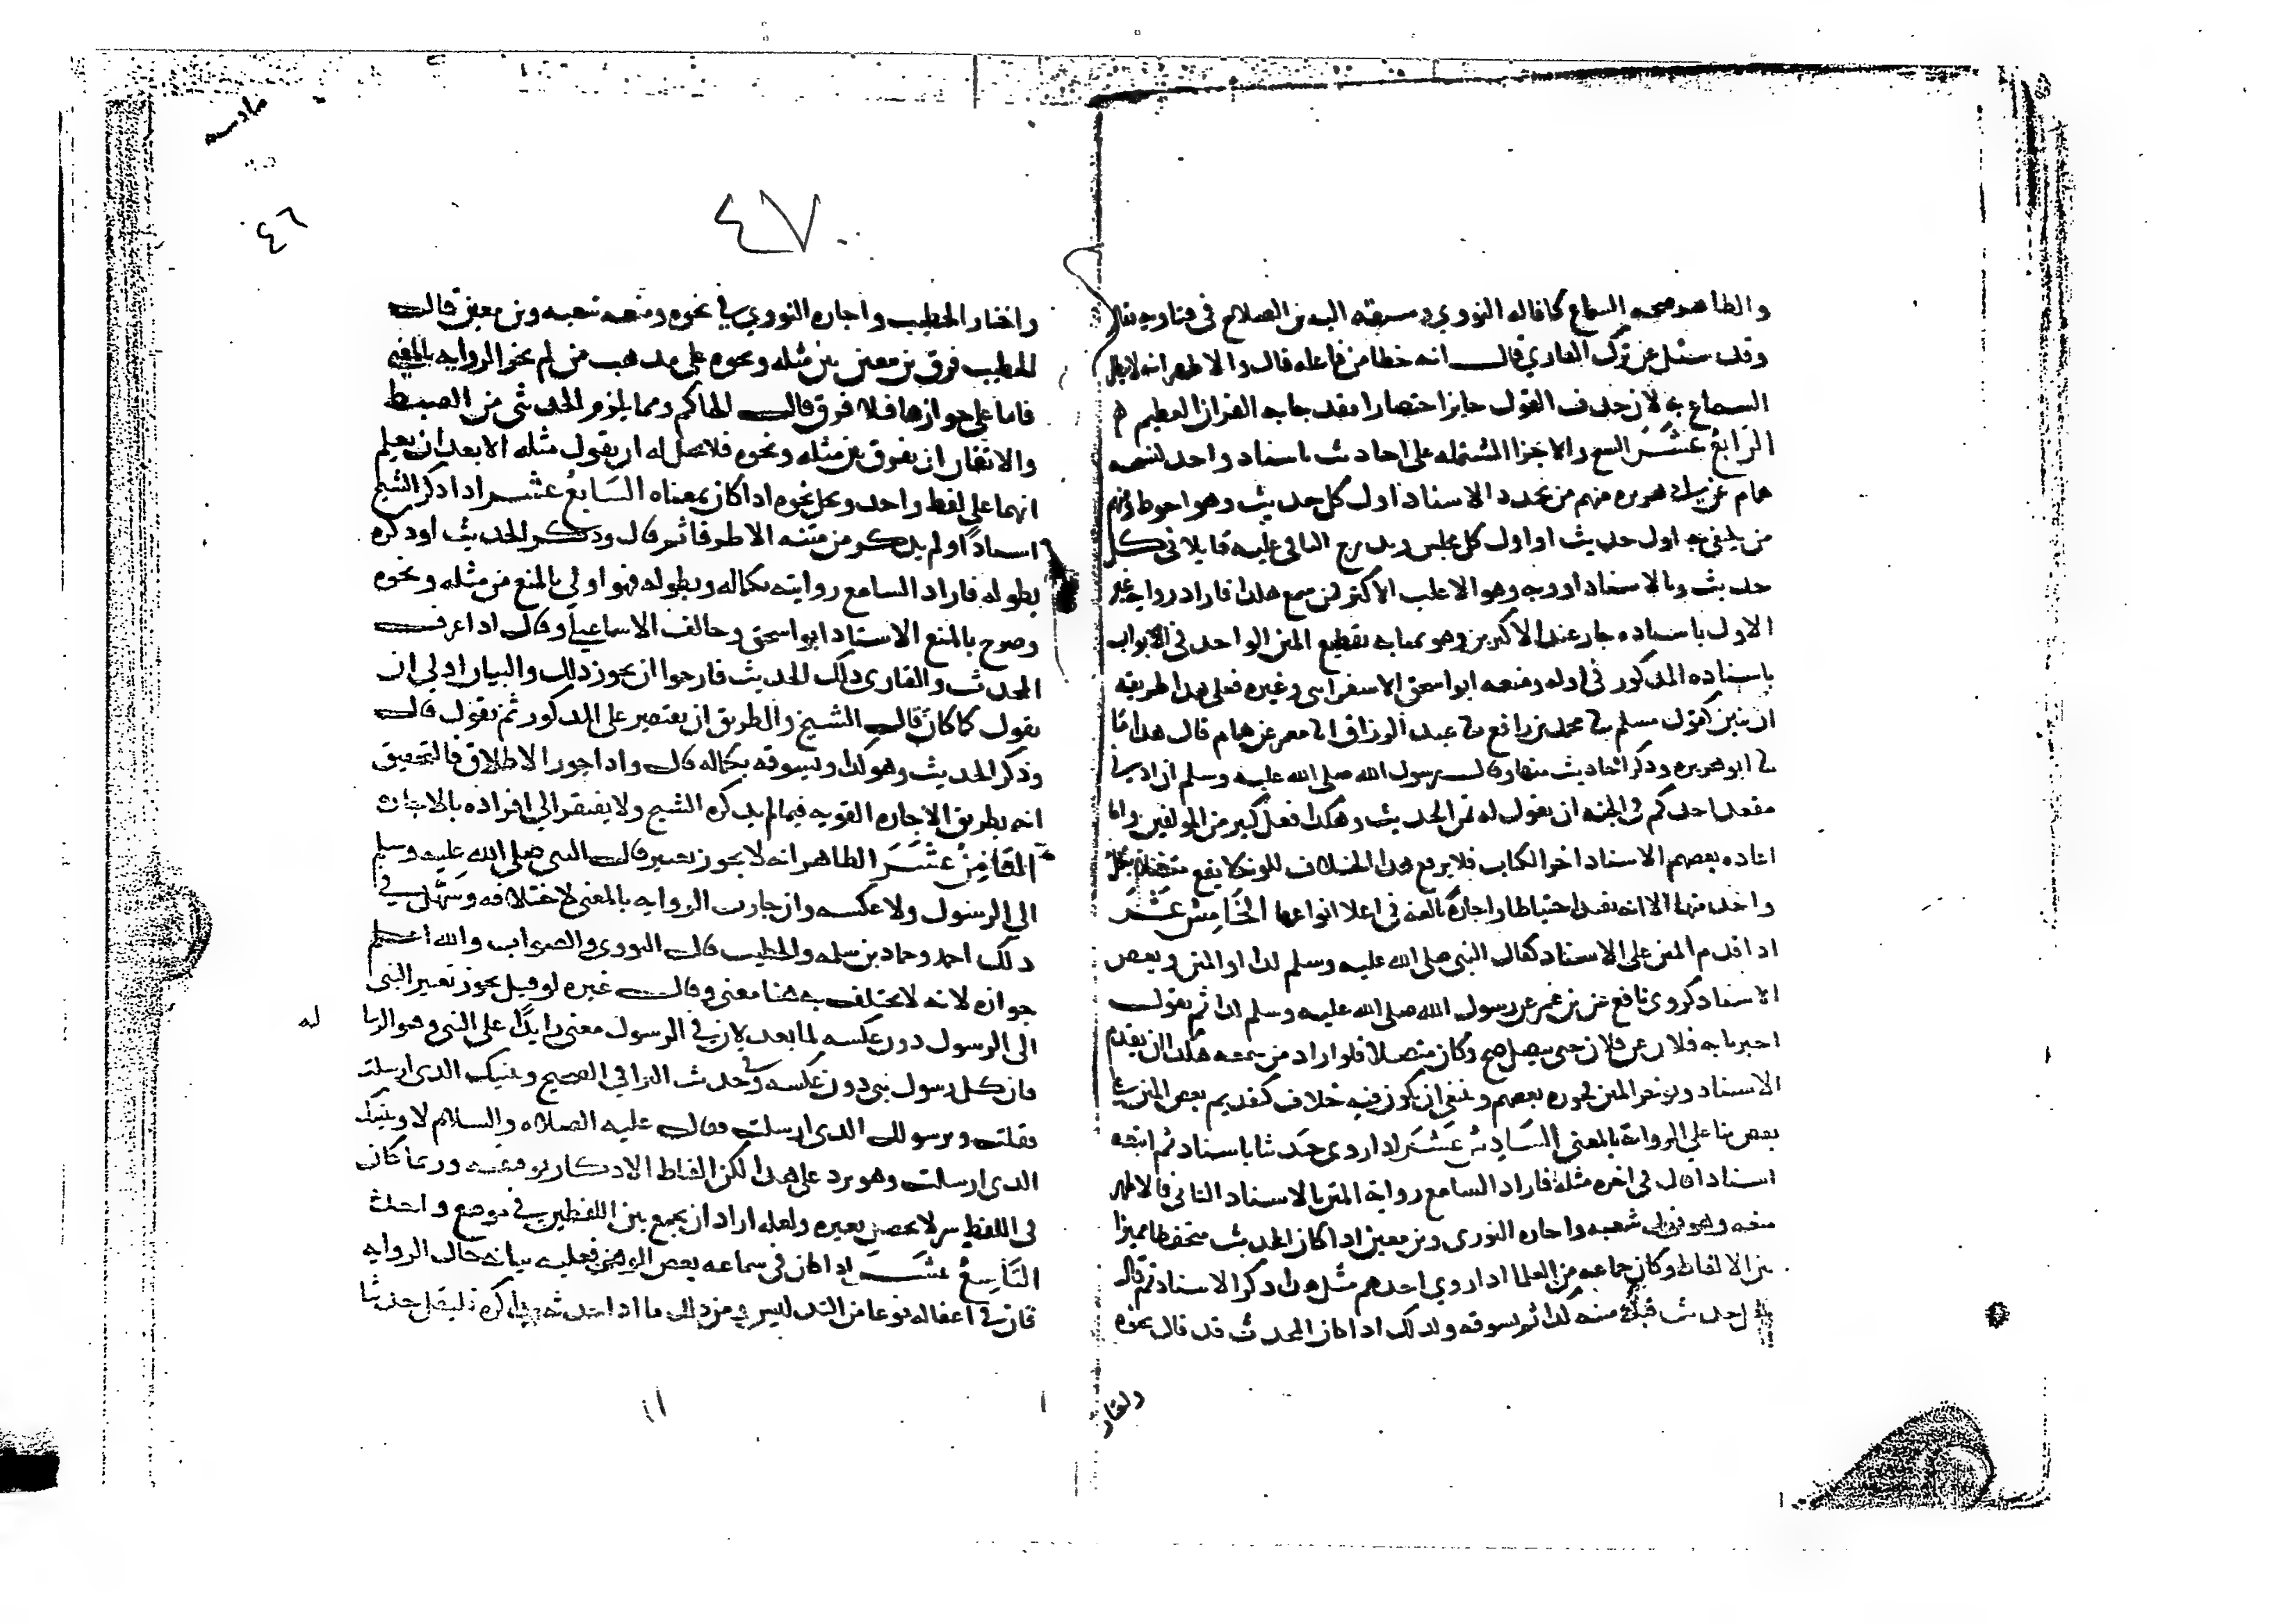 والظاهر صحه السماع كما قاله النووي وسبقه اليه بن الصلاح في فتاويه فقال
وقد سئل عن ترك القاري قال انه خطا من فاعله قال والاظهر انه لا يبطل
السماع به لان حذف القول جايز اختصارا وقد جا به القران العظيم
الرَّابعُ عَشَر النسخ والاجزا المشتمله على احاديث باسناد واحد كنسخه
همام عن ابي هريره منهم من يجدد الاسناد اول كل حديث وهو احوط ومنهم
من يكتفي به اول حديث او اول كل مجلس ويدرج الباقي عليه قايلا في كل
حديث وبالاسناد او وبه وهو الاغلب الاكثر فمن سمع هكذا فاراد رواية غير
الاول باسناده جاز عند الاكثرين وهو بمثابه تقطيع المتن الواحد في الابواب
باسناده المذكور في اوله ومنعه ابو اسحق الاسفرايني وغيره فعلى هذا طريقه
ان يبين كقول مسلم ثنا محمد بن رافع ثنا عبد الرزاق انا معمر عن همام قال هذا ما
ثنا ابو هريره وذكر احاديث منها وقال رسول الله صلى الله عليه وسلم ان ادنى
مقعد احدكم في الجنه ان يقول له تمن الحديث وهكذا فعل كثير من المولفين واما
اعاده بعضهم الاسناد اخر الكتاب فلا يرفع هذا الخلاف لكونه لا يقع متصلا بكل
واحد منها الا انه يفيد احتياطا واجازة بالغه في اعلا انواعها الخَامِسُ عَشَر
اذا قدم المتن على الاسناد كقال النبي صلى الله عليه وسلم كذا او المتن وبعض
الاسناد كروى نافع عن بن عمر عن رسول الله صلى الله عليه وسلم كذا ثم يقول
اخبرنا به فلان عن فلان حتى يتصل صح وكان متصلا فلو اراد من سمعه هكذا ان يقدم
الاسناد ويوخر المتن فجوزه بعضهم وينبغي ان يكون فيه خلاف كتقديم بعض المتن على
بعض بنا على الرواية بالمعنى السَّادِسُ عَشَر اذا روى حَدثنا باسناد ثم اتبعه
اسنادا قال في اخره مثله فاراد السامع رواية المتن بالاسناد الثاني فالاظهر
منعه وهو قول شعبه واجازه الثوري وبن معين اذا كان المحدث متحفظا مميزا
بين الالفاظ وكان جماعه من العلما اذا روى احدهم مثل هذا ذكر الاسناد ثم قال
مثل حديث قبله متنه كذا ثم يسوقه وكذلك اذا كان المحدث قد قال نحوه
٤٧
٤٦
واختار الخطيب واجازه النووي في نحوه ومنعه شعبه وبن معين قال
الخطيب فرق بن معين بين مثله ونحوه على مذهب من لم يجز الروايه بالمعنى
فاما على جوازها فلا فرق قال الحاكم ومما يلزم الحديثي من الضبط
والاتقان ان يفرق بين مثله ونحوه فلا يحل له ان يقول مثله الا بعد ان يعلم
انهما على لفظ واحد ويحل نحوه اذا كان بمعناه السَّابعُ عشر اذا ذكر الشيخ
اسنادًا ولم يذكر من متنه الا طرفا ثم قال وذكر الحديث او ذكره
بطوله فاراد السامع روايته بكماله وبطوله فهو اولى بالمنع من مثله ونحوه
وصرح بالمنع الاستاذ ابو اسحق وخالف الاسماعيلي وقال اذا عرف
المحدث والقاري ذلك الحديث فارجوا ان يجوز ذلك والبيان اولى ان
يقول كما كان قال الشيخ والطريق ان يقتصر على المذكور ثم يقول قال
وذكر الحديث وهو كذا ويسوقه بكماله قال واذا جوز الاطلاق فالتحقيق
انه بطريق الاجازه القويه فيما لم يذكره الشيخ ولا يفتقر الى افراده بالاجازه
الثَامِنُ عَشَر الظاهر انه لا يجوز تغيير قال النبي صلى الله عليه وسلم
الى الرسول ولا عكسه وان جازت الروايه بالمعنى لاختلافه وسَهَّل في
ذلك احمد وحماد بن سلمه والخطيب قال النووي والصواب والله اعلم
جوازه لانه لا يختلف به هنا معنى وقال غيره لو قيل يجوز تغيير النبي
الى الرسول دون عكسه لما بعد لان في الرسول معنى زايدًا على النبي وهو الرسا
له
فان كل رسول نبي دون عكسه وفي حديث البرا في الصحيح ونبيك الذي ارسلت
فقلت وبرسولك الذي ارسلت فقال عليه الصلاه والسلام لا ونبيك
الذي ارسلت وهو يرد على هذا لكن الفاظ الاذكار توقيفيه وربما كان
في اللفظ سر لا يحصل بغيره ولعله اراد ان يجمع بين اللفظين في موضع واحد
التَّاسِعُ عشَر اذا كان في سماعه بعض الوهن فعليه بيانه حال الروايه
فان في اغفاله نوعا من التدليس ومن ذلك ما اذا حدثه مذاكرة فليقل حدثنا